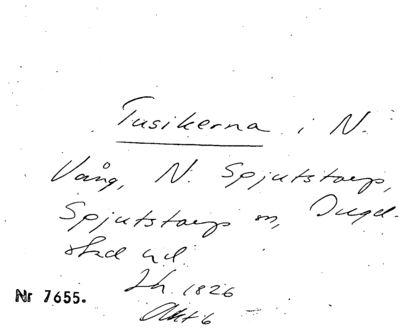 Tusikerna i N.
Vång, N. Spjutstorp,
Spjutstorps sn, Ingel-
stad hd.
Lh. 1826
Akt 6
Nr 7655.